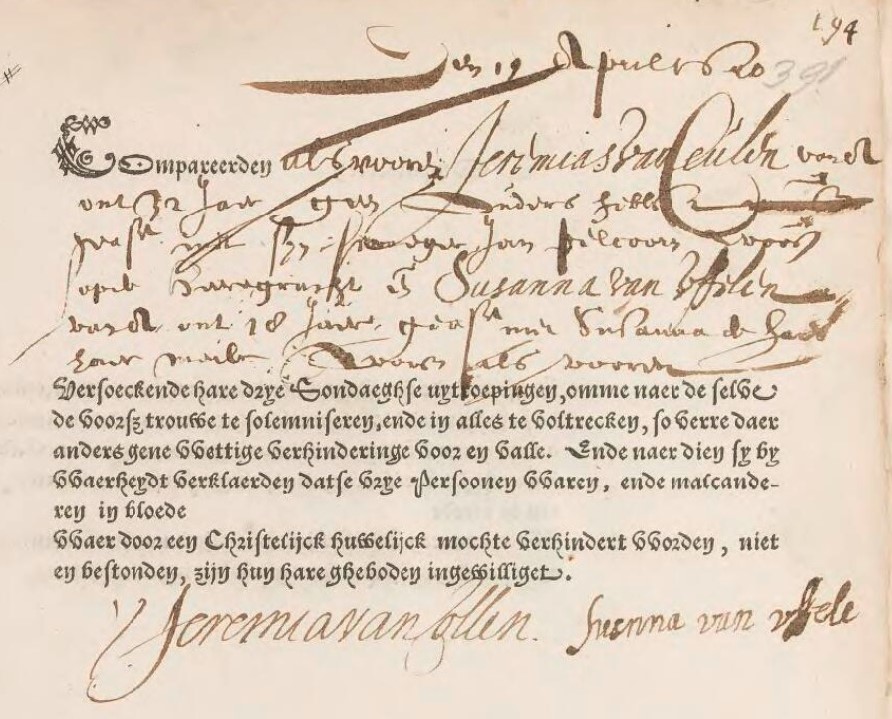 194
391
Den 19 Aprilis 20
Compareerden als vooren Jeremias van Ceulen van A
out 32 Jaer geen ouders hebb
geast met syn Jan Pelcoorn woon
opde Heeregracht en Susanna van Uffelen
van A out 18 Jaer geast met Susanna de
haer woon als vooren
Versoeckende hare drye Sondaeghse uytroepingen, omme naer de selve
de voorsz trouwe te solemniseren, ende in alles te voltrecken, so verre daer
anders gene wettige verhinderinge voor en valle. Ende naer dien sy by
waerheydt verklaerden datse vrye Persoonen waren, ende malcande-
ren in bloede
waer door een Christelijck huwelijck mochte verhindert worden, niet
en bestonden, zijn hun hare gheboden ingewilliget.
Jeremia van Collen. Susnna van uffele